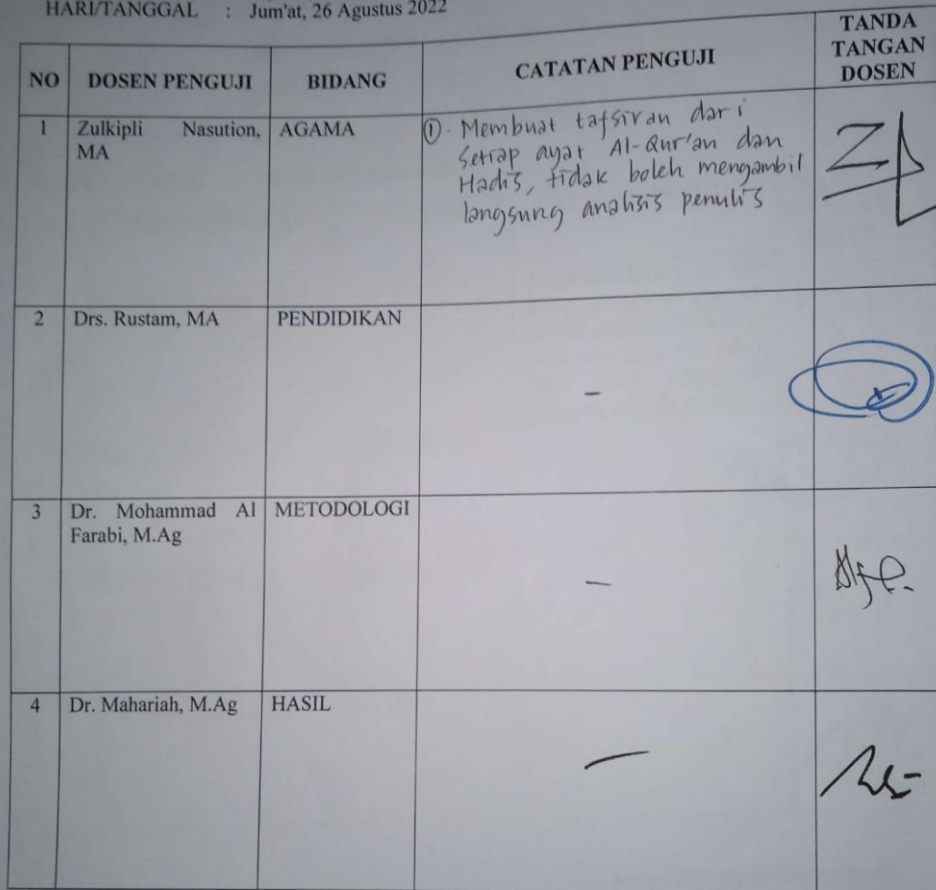 HARI/TANGGAL : Jum'at, 26 Agustus 2022
NO DOSEN PENGUJI BIDANG CATATAN PENGUJI TANDA TANGAN DOSEN
1 Zulkipli Nasution, MA AGAMA
① Membuat tafsiran dari
setiap ayat Al-Qur'an dan
Hadis, tidak boleh mengambil
langsung analisis penulis
2 Drs. Rustam, MA PENDIDIKAN -
3 Dr. Mohammad Al Farabi, M.Ag METODOLOGI -
4 Dr. Mahariah, M.Ag HASIL -